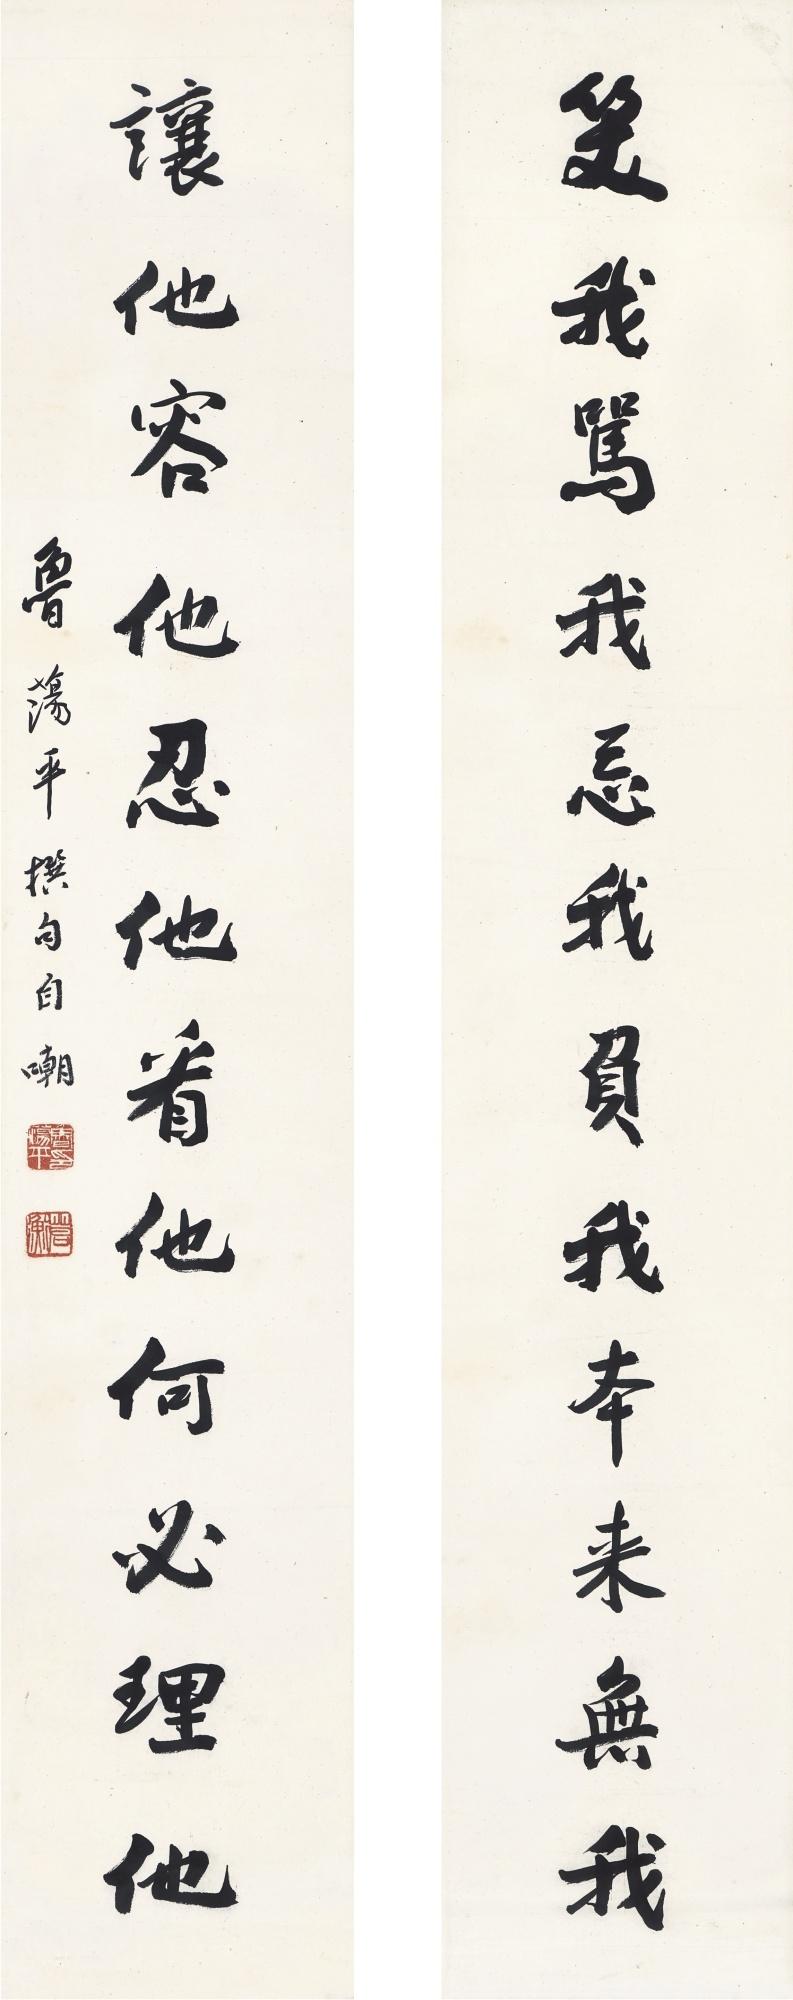 笑我罵我忌我負我本来無我
讓他容他忍他看他何必理他
魯蕩平撰句自嘲
魯蕩平印